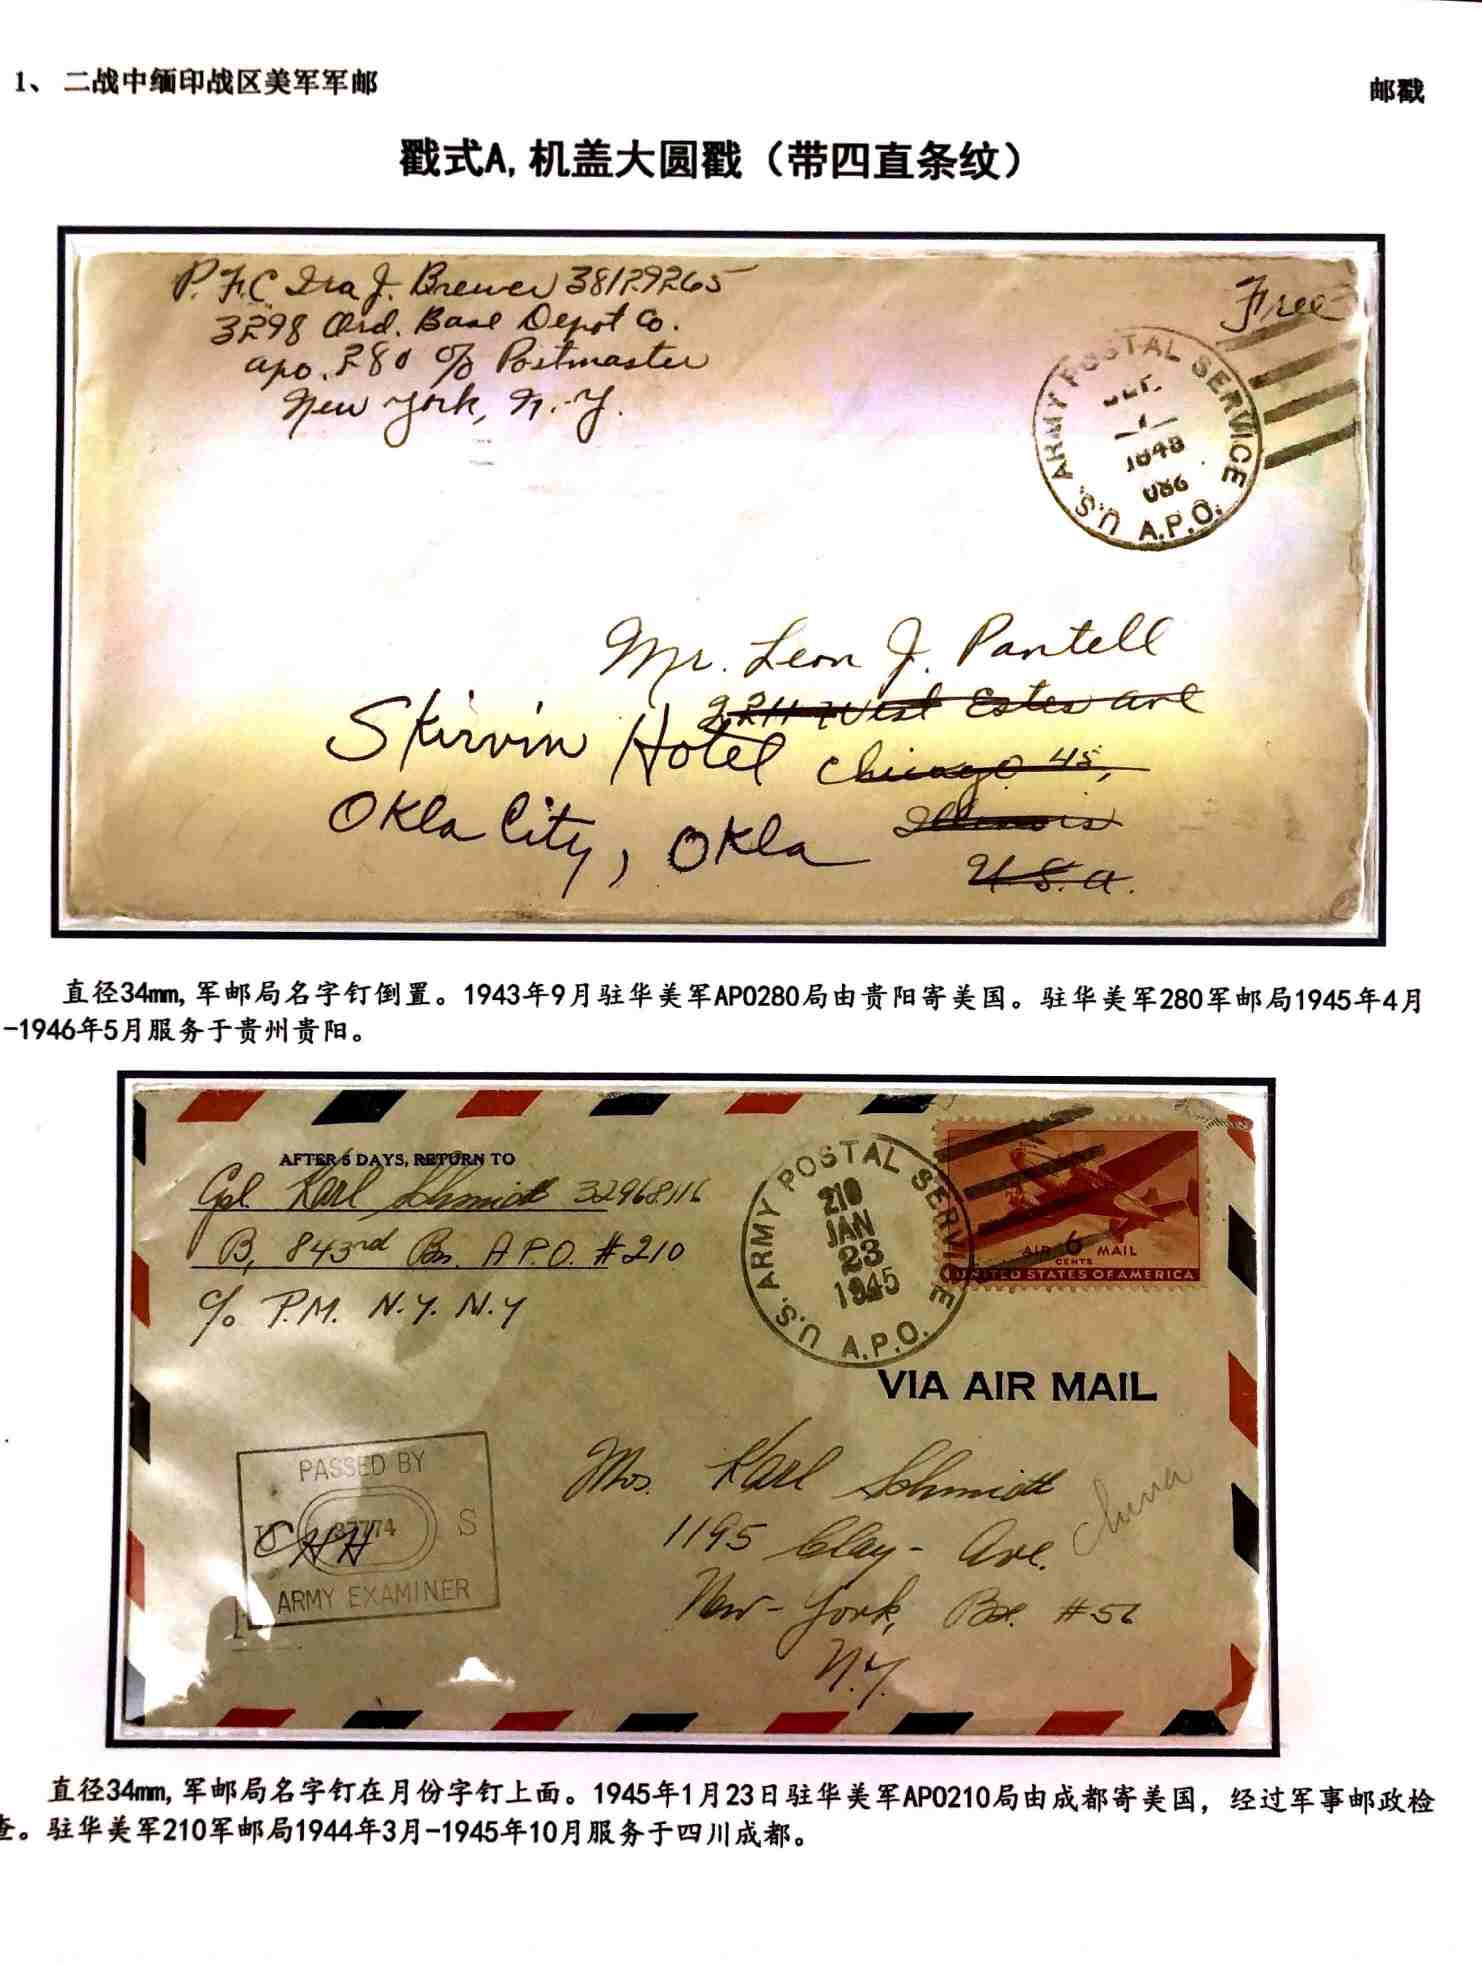 1、 二战中缅印战区美军军邮
邮戳
戳式A,机盖大圆戳（带四直条纹）
P.F.C Ira J. Brewer 38129265
3298 Ord. Base Depot Co.
apo. 280 c/o Postmaster
New York, N.Y.
Free
U.S. ARMY POSTAL SERVICE
A.P.O.
Mr. Leon J. Pantell
2211 West Estes Ave
Skirvin Hotel
Chicago 45,
Okla City, Okla
Illinois
U.S.A.
直径34mm,军邮局名字钉倒置。1943年9月驻华美军APO280局由贵阳寄美国。驻华美军280军邮局1945年4月
-1946年5月服务于贵州贵阳。
AFTER 5 DAYS, RETURN TO
Cpl. Karl Schmidt 32968116
B, 843rd Bn. A.P.O. #210
c/o P.M. N.Y. N.Y
U.S. ARMY POSTAL SERVICE
210
JAN
23
1945
A.P.O.
AIR 6 MAIL
CENTS
UNITED STATES OF AMERICA
VIA AIR MAIL
PASSED BY
37774
S
ARMY EXAMINER
Mrs. Karl Schmidt
China
1195 Clay- Ave.
New-York, Bx. #56
N.Y.
直径34mm,军邮局名字钉在月份字钉上面。1945年1月23日驻华美军APO210局由成都寄美国，经过军事邮政检
查。驻华美军210军邮局1944年3月-1945年10月服务于四川成都。